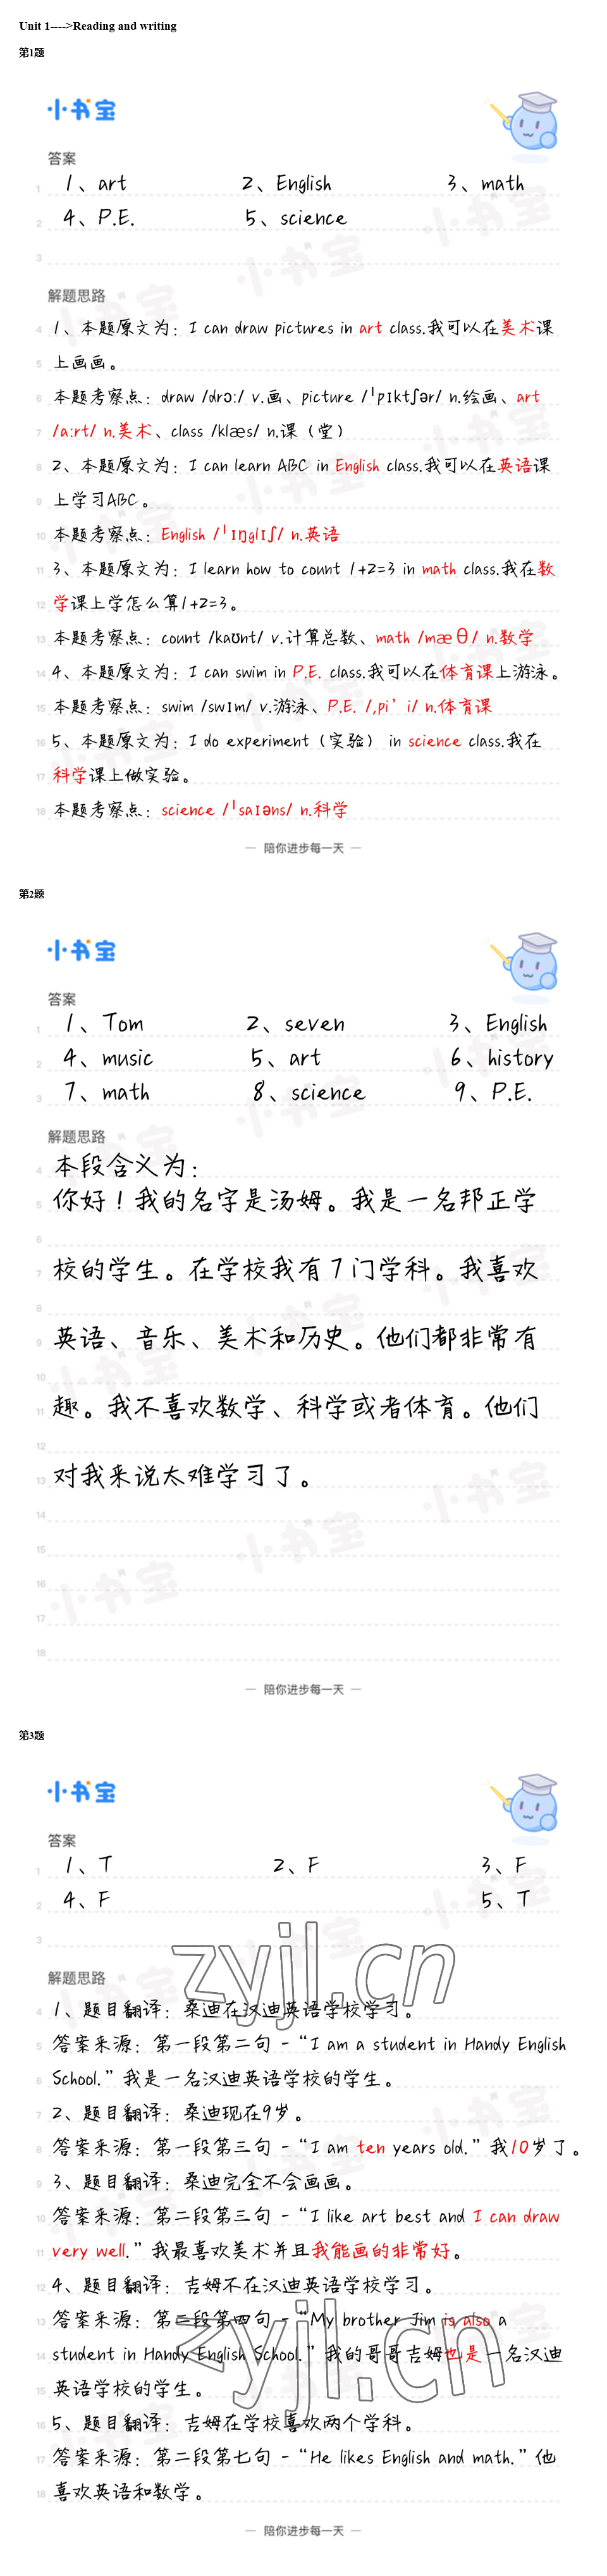 Unit 1---->Reading and writing
第1题
小书宝
答案
1、art 2、English 3、math
4、P.E. 5、science
解题思路
1、本题原文为：I can draw pictures in art class.我可以在美术课
上画画。
本题考察点：draw /drɔː/ v.画、picture /ˈpɪktʃər/ n.绘画、art
/aːrt/ n.美术、class /klæs/ n.课（堂）
2、本题原文为：I can learn ABC in English class.我可以在英语课
上学习ABC。
本题考察点：English /ˈɪŋglɪʃ/ n.英语
3、本题原文为：I learn how to count 1+2=3 in math class.我在数
学课上学怎么算1+2=3。
本题考察点：count /kaʊnt/ v.计算总数、math /mæθ/ n.数学
4、本题原文为：I can swim in P.E. class.我可以在体育课上游泳。
本题考察点：swim /swɪm/ v.游泳、P.E. /,pi'i/ n.体育课
5、本题原文为：I do experiment（实验） in science class.我在
科学课上做实验。
本题考察点：science /ˈsaɪəns/ n.科学
— 陪你进步每一天 —
第2题
小书宝
答案
1、Tom 2、seven 3、English
4、music 5、art 6、history
7、math 8、science 9、P.E.
解题思路
本段含义为：
你好！我的名字是汤姆。我是一名邦正学
校的学生。在学校我有7门学科。我喜欢
英语、音乐、美术和历史。他们都非常有
趣。我不喜欢数学、科学或者体育。他们
对我来说太难学习了。
— 陪你进步每一天 —
第3题
小书宝
答案
1、T 2、F 3、F
4、F 5、T
zyjl.cn
解题思路
1、题目翻译：桑迪在汉迪英语学校学习。
答案来源：第一段第二句 - “I am a student in Handy English
School.” 我是一名汉迪英语学校的学生。
2、题目翻译：桑迪现在9岁。
答案来源：第一段第三句 - “I am ten years old.” 我10岁了。
3、题目翻译：桑迪完全不会画画。
答案来源：第二段第三句 - “I like art best and I can draw
very well.” 我最喜欢美术并且我能画的非常好。
4、题目翻译：吉姆不在汉迪英语学校学习。
答案来源：第二段第四句 - “My brother Jim is also a
student in Handy English School.” 我的哥哥吉姆也是一名汉迪
英语学校的学生。
zyjl.cn
5、题目翻译：吉姆在学校喜欢两个学科。
答案来源：第二段第七句 - “He likes English and math.” 他
喜欢英语和数学。
— 陪你进步每一天 —